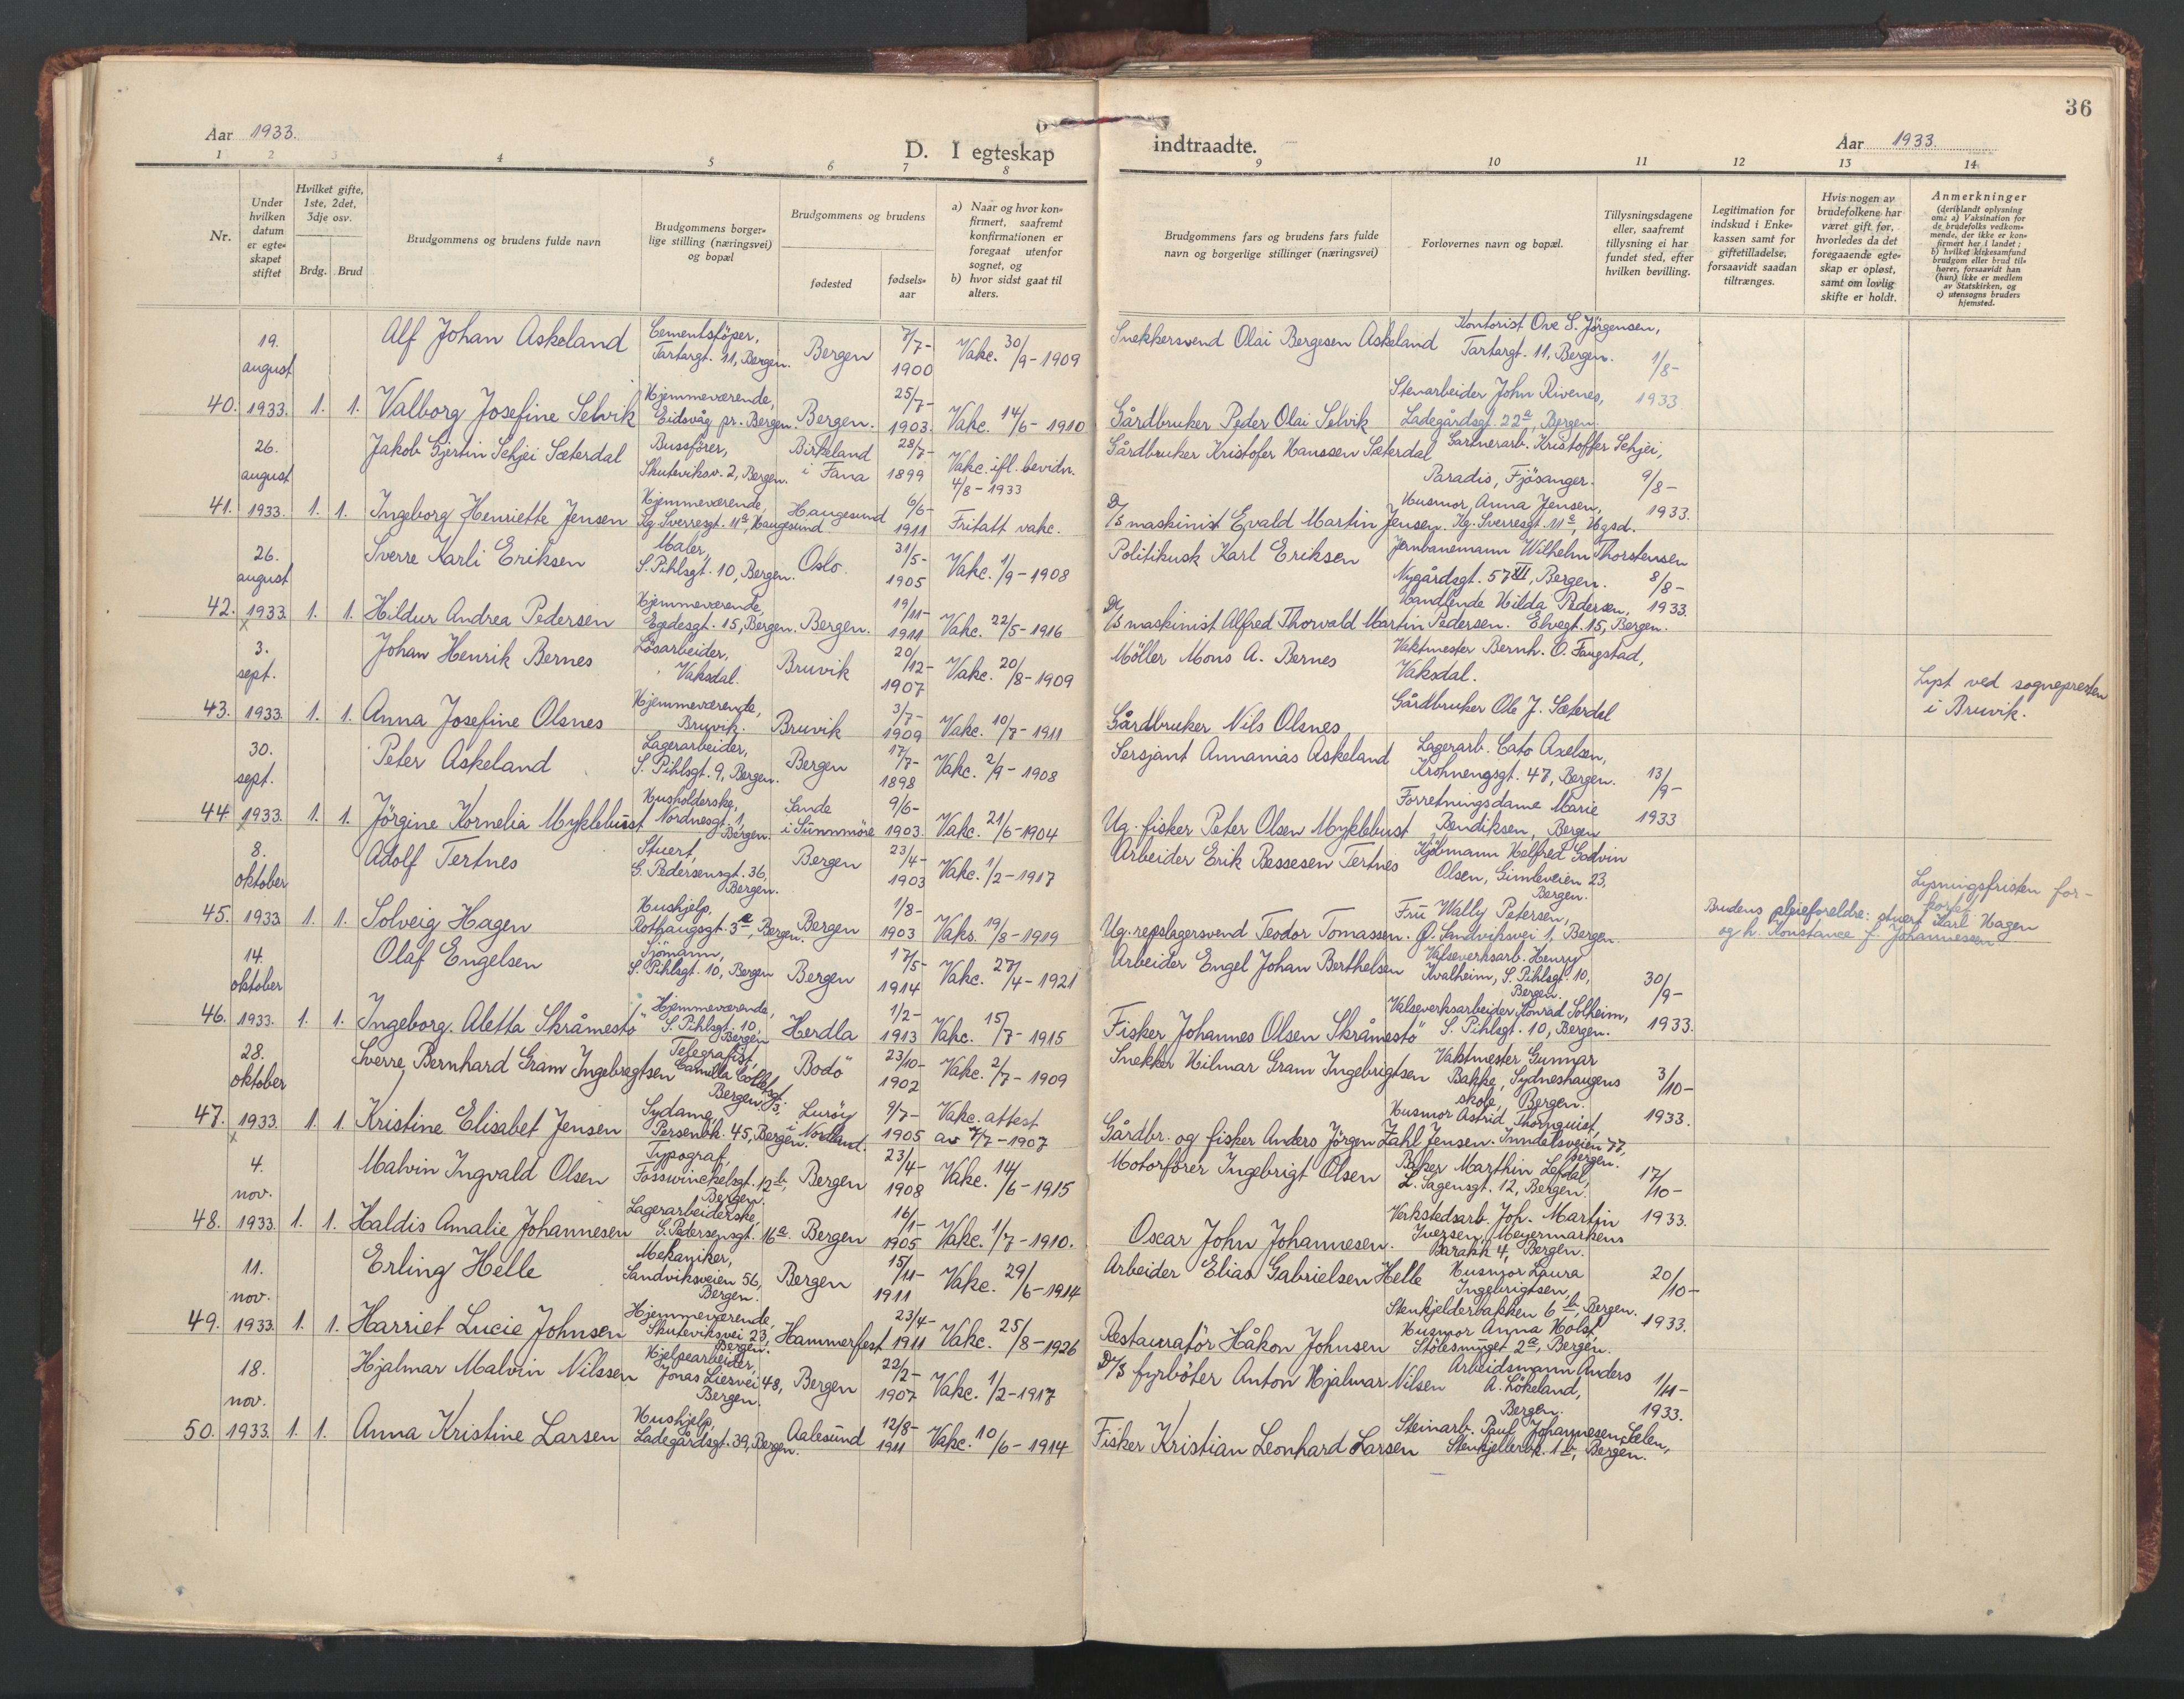 36
Aar 1933.
D. I egteskap indtraadte.
Aar 1933.
1 2 3 4 5 6 7 8 9 10 11 12 13 14
Nr.
Under hvilken datum er egteskapet stiftet
Hvilket gifte, 1ste, 2det, 3dje osv.
Brdg. Brud
Brudgommens og brudens fulde navn
Brudgommens borgerlige stilling (næringsvei) og bopæl
Brudgommens og brudens
fødested
fødselsaar
a) Naar og hvor konfirmert, saafremt konfirmationen er foregaat utenfor sognet, og
b) hvor sidst gaat til alters.
Brudgommens fars og brudens fars fulde navn og borgerlige stillinger (næringsvei)
Forlovernes navn og bopæl.
Tillysningsdagene eller, saafremt tillysning ei har fundet sted, efter hvilken bevilling.
Legitimation for indskud i Enkekassen samt for giftetilladelse, forsaavidt saadan tiltrænges.
Hvis nogen av brudefolkene har været gift før, hvorledes da det foregaaende egteskap er opløst, samt om lovlig skifte er holdt.
Anmerkninger
(deriblandt oplysning om: a) Vaksination for de brudefolks vedkommende, der ikke er konfirmert her i landet; b) hvilket kirkesamfund brudgom eller brud tilhører, forsaavidt han (hun) ikke er medlem av Statskirken, og c) utensogns bruders hjemsted.
40. 19. august 1933. 1. 1.
Alf Johan Askeland Cementstöper, Tartargt. 11, Bergen. Bergen 7/7-1900 Vakc. 30/9-1909 Snekkersvend Olai Bergesen Askeland Kontorist Ove S. Jörgensen, Tartargt. 11, Bergen. 1/8-1933
Valborg Josefine Selvik Hjemmeværende, Eidsvåg pr. Bergen. Bergen. 25/7-1903. Vakc. 14/6-1910 Gårdbruker Peder Olai Selvik Stenarbeider John Rivenes, Ladegårdsgt. 22a, Bergen.
41. 26. august 1933. 1. 1.
Jakob Gjertin Schjei Sæterdal Bussförer, Skuteviksv. 2, Bergen. Birkeland i Fana 28/7-1899 Vakc. ifl. bevidn. 4/8-1933 Gårdbruker Kristofer Hanssen Sæterdal Gartnerarb. Kristoffer Schjei, Paradis, Fjösanger. 9/8-1933.
Ingeborg Henriette Jensen Hjemmeværende, Kg. Sverresgt. 11a, Haugesund. Haugesund 6/6-1911 Fritatt vakc. D/S maskinist Evald Martin Jensen. Husmor Anna Jensen, Kg. Sverresgt. 11a, Hgsd.
42. 26. august 1933. 1. 1.
Sverre Karli Eriksen Maler, S. Pihlsgt. 10, Bergen. Oslo. 31/5-1905 Vakc. 1/9-1908 Politikusk Karl Eriksen Jernbanemann Wilhelm Thorstensen Nygårdsgt. 57 III, Bergen. 8/8-1933.
Hildur Andrea Pedersen Hjemmeværende, Egedesgt. 15, Bergen. Bergen. 19/11-1911 Vakc. 22/5-1916 D/S maskinist Alfred Thorvald Martin Pedersen. Handlende Hilda Pedersen, Elvegt. 15, Bergen.
43. 3. sept. 1933. 1. 1.
Johan Henrik Bernes Lösarbeider, Vaksdal. Bruvik 20/12-1907 Vakc. 20/8-1909 Möller Mons A. Bernes Vaktmester Bernh. O. Faugstad, Vaksdal. Lyst ved sognepresten i Bruvik.
Anna Josefine Olsnes Hjemmeværende, Bruvik. Bruvik 3/7-1909 Vakc. 10/7-1911 Gårdbruker Nils Olsnes Gårdbruker Ole J. Sæterdal
44 30. sept. 1933. 1. 1.
Peter Askeland Lagerarbeider, S. Pihlsgt. 9, Bergen. Bergen 17/7-1898 Vakc. 2/9-1908 Sersjant Annanias Askeland Lagerarb. Cato Axelsen, Krohnengsgt. 47, Bergen. 13/9-1933
Jörgine Kornelia Myklebust Husholderske, Nordnesgt. 1, Bergen. Sande i Sunnmöre 9/6-1903. Vakc. 21/6-1904 Ug. fisker Peter Olsen Myklebust Forretningsdame Marie Bendiksen, Bergen
45. 8. oktober 1933 1. 1.
Adolf Tertnes Stuert, G. Pedersensgt. 36, Bergen. Bergen 23/4-1903 Vakc. 1/2-1917 Arbeider Erik Bessesen Tertnes Kjöbmann Helfred Godvin Olsen, Gimleveien 23, Bergen. Lysningsfristen forkortet
Solveig Hagen Hushjelp, Rothaugsgt. 3a, Bergen. Bergen 1/8-1903 Vaks. 19/8-1919 Ug. repslagersvend Teodor Tomassen. Fru Wally Petersen, Ø. Sandviksvei 1, Bergen. Brudens pleieforeldre: stuert Karl Hagen og h. Konstance f. Johannesen
46. 14. oktober 1933. 1. 1.
Olaf Engelsen Sjömann, S. Pihlsgt. 10, Bergen Bergen 17/5-1914 Vakc. 27/4-1921 Arbeider Engel Johan Berthelsen Valseverksarb. Henry Kvalheim, S. Pihlsgt. 10, Bergen. 30/9-1933.
Ingeborg Aletta Skråmestö Hjemmeværende, S. Pihlsgt. 10, Bergen Herdla 1/2-1913 Vakc. 15/7-1915 Fisker Johannes Olsen Skråmestö Valseverksarbeider Konrad Solheim, S. Pihlsgt. 10, Bergen.
47. 28. oktober 1933. 1. 1.
Sverre Bernhard Gram Ingebregtsen Telegrafist, Camilla Colletsgt. 3, Bergen. Bodö 23/10-1902 Vakc. 2/7-1909 Snekker Hilmar Gram Ingebrigtsen Vaktmester Gunnar Bakke, Sydneshaugens skole, Bergen. 3/10-1933.
Kristine Elisabet Jensen Sydame, Persenbk. 45, Bergen. Luröy i Nordland. 9/7-1905 Vakc. attest av 7/7-1907 Gårdbr. og fisker Anders Jörgen Zahl Jensen. Husmor Astrid Thornquist, Inndalsveien 77, Bergen.
48. 4. nov. 1933. 1. 1.
Malvin Ingvald Olsen Typograf, Fosswinckelsgt. 12b, Bergen. Bergen 23/4-1908 Vakc. 14/6-1915 Motorförer Ingebrigt Olsen Baker Marthin Lefdal, L. Sagensgt. 12, Bergen. 17/10-1933.
Haldis Amalie Johannesen Lagerarbeiderske, G. Pedersensgt. 16a. Bergen 16/1-1905 Vakc. 1/7-1910. Oscar John Johannesen. Verkstedsarb. Joh. Martin Iversen, Meyermarkens Barakk 4, Bergen.
49. 11. nov. 1933. 1. 1.
Erling Helle Mekaniker, Sandviksveien 56, Bergen. Bergen 15/11-1911 Vakc. 29/6-1914 Arbeider Elias Gabrielsen Helle Husmor Laura Ingebrigtsen, Stenkjelderbakken 6b, Bergen. 20/10-1933.
Harriet Lucie Johnsen Hjemmeværende, Skuteviksvei 23, Bergen. Hammerfest 23/4-1911 Vakc. 25/8-1926 Restauratör Håkon Johnsen Husmor Anna Holst, Stölesmuget 2a, Bergen.
50. 18. nov. 1933. 1. 1.
Hjalmar Malvin Nilssen Hjelpearbeider, Jonas Liesvei 48, Bergen. Bergen 22/2-1907 Vakc. 1/2-1917 D/S fyrböter Anton Hjalmar Nilsen Arbeidsmann Anders A. Lökeland, Bergen. 1/11-1933.
Anna Kristine Larsen Hushjelp, Ladegårdsgt. 39, Bergen. Aalesund 12/8-1911 Vakc. 10/6-1914 Fisker Kristian Leonhard Larsen Steinarb. Paul Johannesen Lelen, Stenkjellerbk. 1b, Bergen.